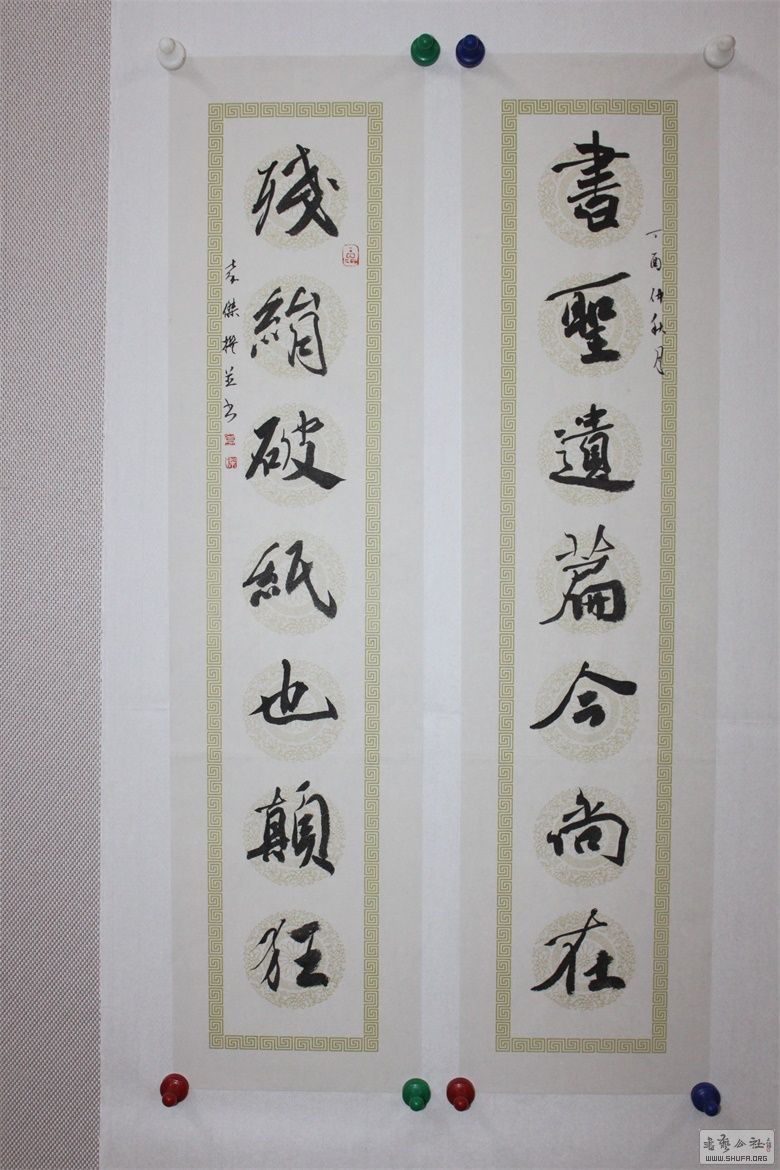 書聖遺篇今尚在
丁酉仲秋月
殘絹破紙也顛狂
傑撰並书
書藝公社
WWW.SHUFA.ORG